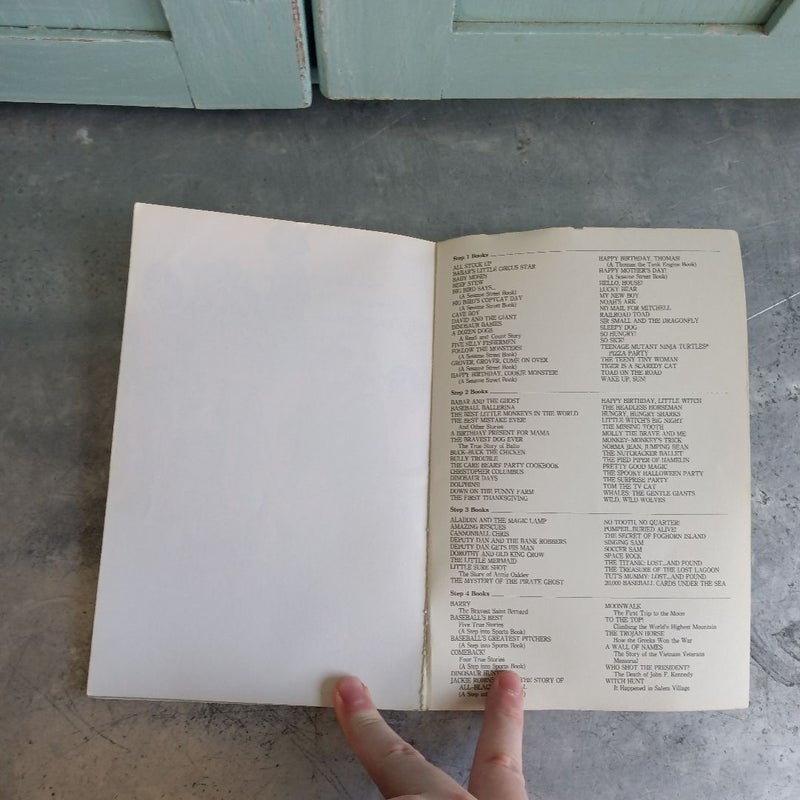 Step 1 Books
ALL STUCK UP
BABAR'S LITTLE CIRCUS STAR
BABY MOSES
BEEF STEW
BIG BIRD SAYS...
(A Sesame Street Book)
BIG BIRD'S COPYCAT DAY
(A Sesame Street Book)
CAVE BOY
DAVID AND THE GIANT
DINOSAUR BABIES
A DOZEN DOGS
A Read and Count Story
FIVE SILLY FISHERMEN
FOLLOW THE MONSTERS!
(A Sesame Street Book)
GROVER, GROVER, COME ON OVER
(A Sesame Street Book)
HAPPY BIRTHDAY, COOKIE MONSTER!
(A Sesame Street Book)
HAPPY BIRTHDAY, THOMAS!
(A Thomas the Tank Engine Book)
HAPPY MOTHER'S DAY!
(A Sesame Street Book)
HELLO, HOUSE!
LUCKY BEAR
MY NEW BOY
NOAH'S ARK
NO MAIL FOR MITCHELL
RAILROAD TOAD
SIR SMALL AND THE DRAGONFLY
SLEEPY DOG
SO HUNGRY!
SO SICK!
TEENAGE MUTANT NINJA TURTLES®
PIZZA PARTY
THE TEENY TINY WOMAN
TIGER IS A SCAREDY CAT
TOAD ON THE ROAD
WAKE UP, SUN!
Step 2 Books
BABAR AND THE GHOST
BASEBALL BALLERINA
THE BEST LITTLE MONKEYS IN THE WORLD
THE BEST MISTAKE EVER!
And Other Stories
A BIRTHDAY PRESENT FOR MAMA
THE BRAVEST DOG EVER
The True Story of Balto
BUCK-BUCK THE CHICKEN
BULLY TROUBLE
THE CARE BEARS' PARTY COOKBOOK
CHRISTOPHER COLUMBUS
DINOSAUR DAYS
DOLPHINS!
DOWN ON THE FUNNY FARM
THE FIRST THANKSGIVING
HAPPY BIRTHDAY, LITTLE WITCH
THE HEADLESS HORSEMAN
HUNGRY, HUNGRY SHARKS
LITTLE WITCH'S BIG NIGHT
THE MISSING TOOTH
MOLLY THE BRAVE AND ME
MONKEY-MONKEY'S TRICK
NORMA JEAN, JUMPING BEAN
THE NUTCRACKER BALLET
THE PIED PIPER OF HAMELIN
PRETTY GOOD MAGIC
THE SPOOKY HALLOWEEN PARTY
THE SURPRISE PARTY
TOM THE TV CAT
WHALES: THE GENTLE GIANTS
WILD, WILD WOLVES
Step 3 Books
ALADDIN AND THE MAGIC LAMP
AMAZING RESCUES
CANNONBALL CHRIS
DEPUTY DAN AND THE BANK ROBBERS
DEPUTY DAN GETS HIS MAN
DOROTHY AND OLD KING CROW
THE LITTLE MERMAID
LITTLE SURE SHOT
The Story of Annie Oakley
THE MYSTERY OF THE PIRATE GHOST
NO TOOTH, NO QUARTER!
POMPEII...BURIED ALIVE!
THE SECRET OF FOGHORN ISLAND
SINGING SAM
SOCCER SAM
SPACE ROCK
THE TITANIC: LOST...AND FOUND
THE TREASURE OF THE LOST LAGOON
TUT'S MUMMY: LOST...AND FOUND
20,000 BASEBALL CARDS UNDER THE SEA
Step 4 Books
BARRY
The Bravest Saint Bernard
BASEBALL'S BEST
Five True Stories
(A Step into Sports Book)
BASEBALL'S GREATEST PITCHERS
(A Step into Sports Book)
COMEBACK!
Four True Stories
(A Step into Sports Book)
DINOSAUR
JACKIE THE STORY OF
(A Step
MOONWALK
The First Trip to the Moon
TO THE TOP!
Climbing the World's Highest Mountain
THE TROJAN HORSE
How the Greeks Won the War
A WALL OF NAMES
The Story of the Vietnam Veterans
Memorial
WHO SHOT THE PRESIDENT?
The Death of John F. Kennedy
WITCH HUNT
It Happened in Salem Village